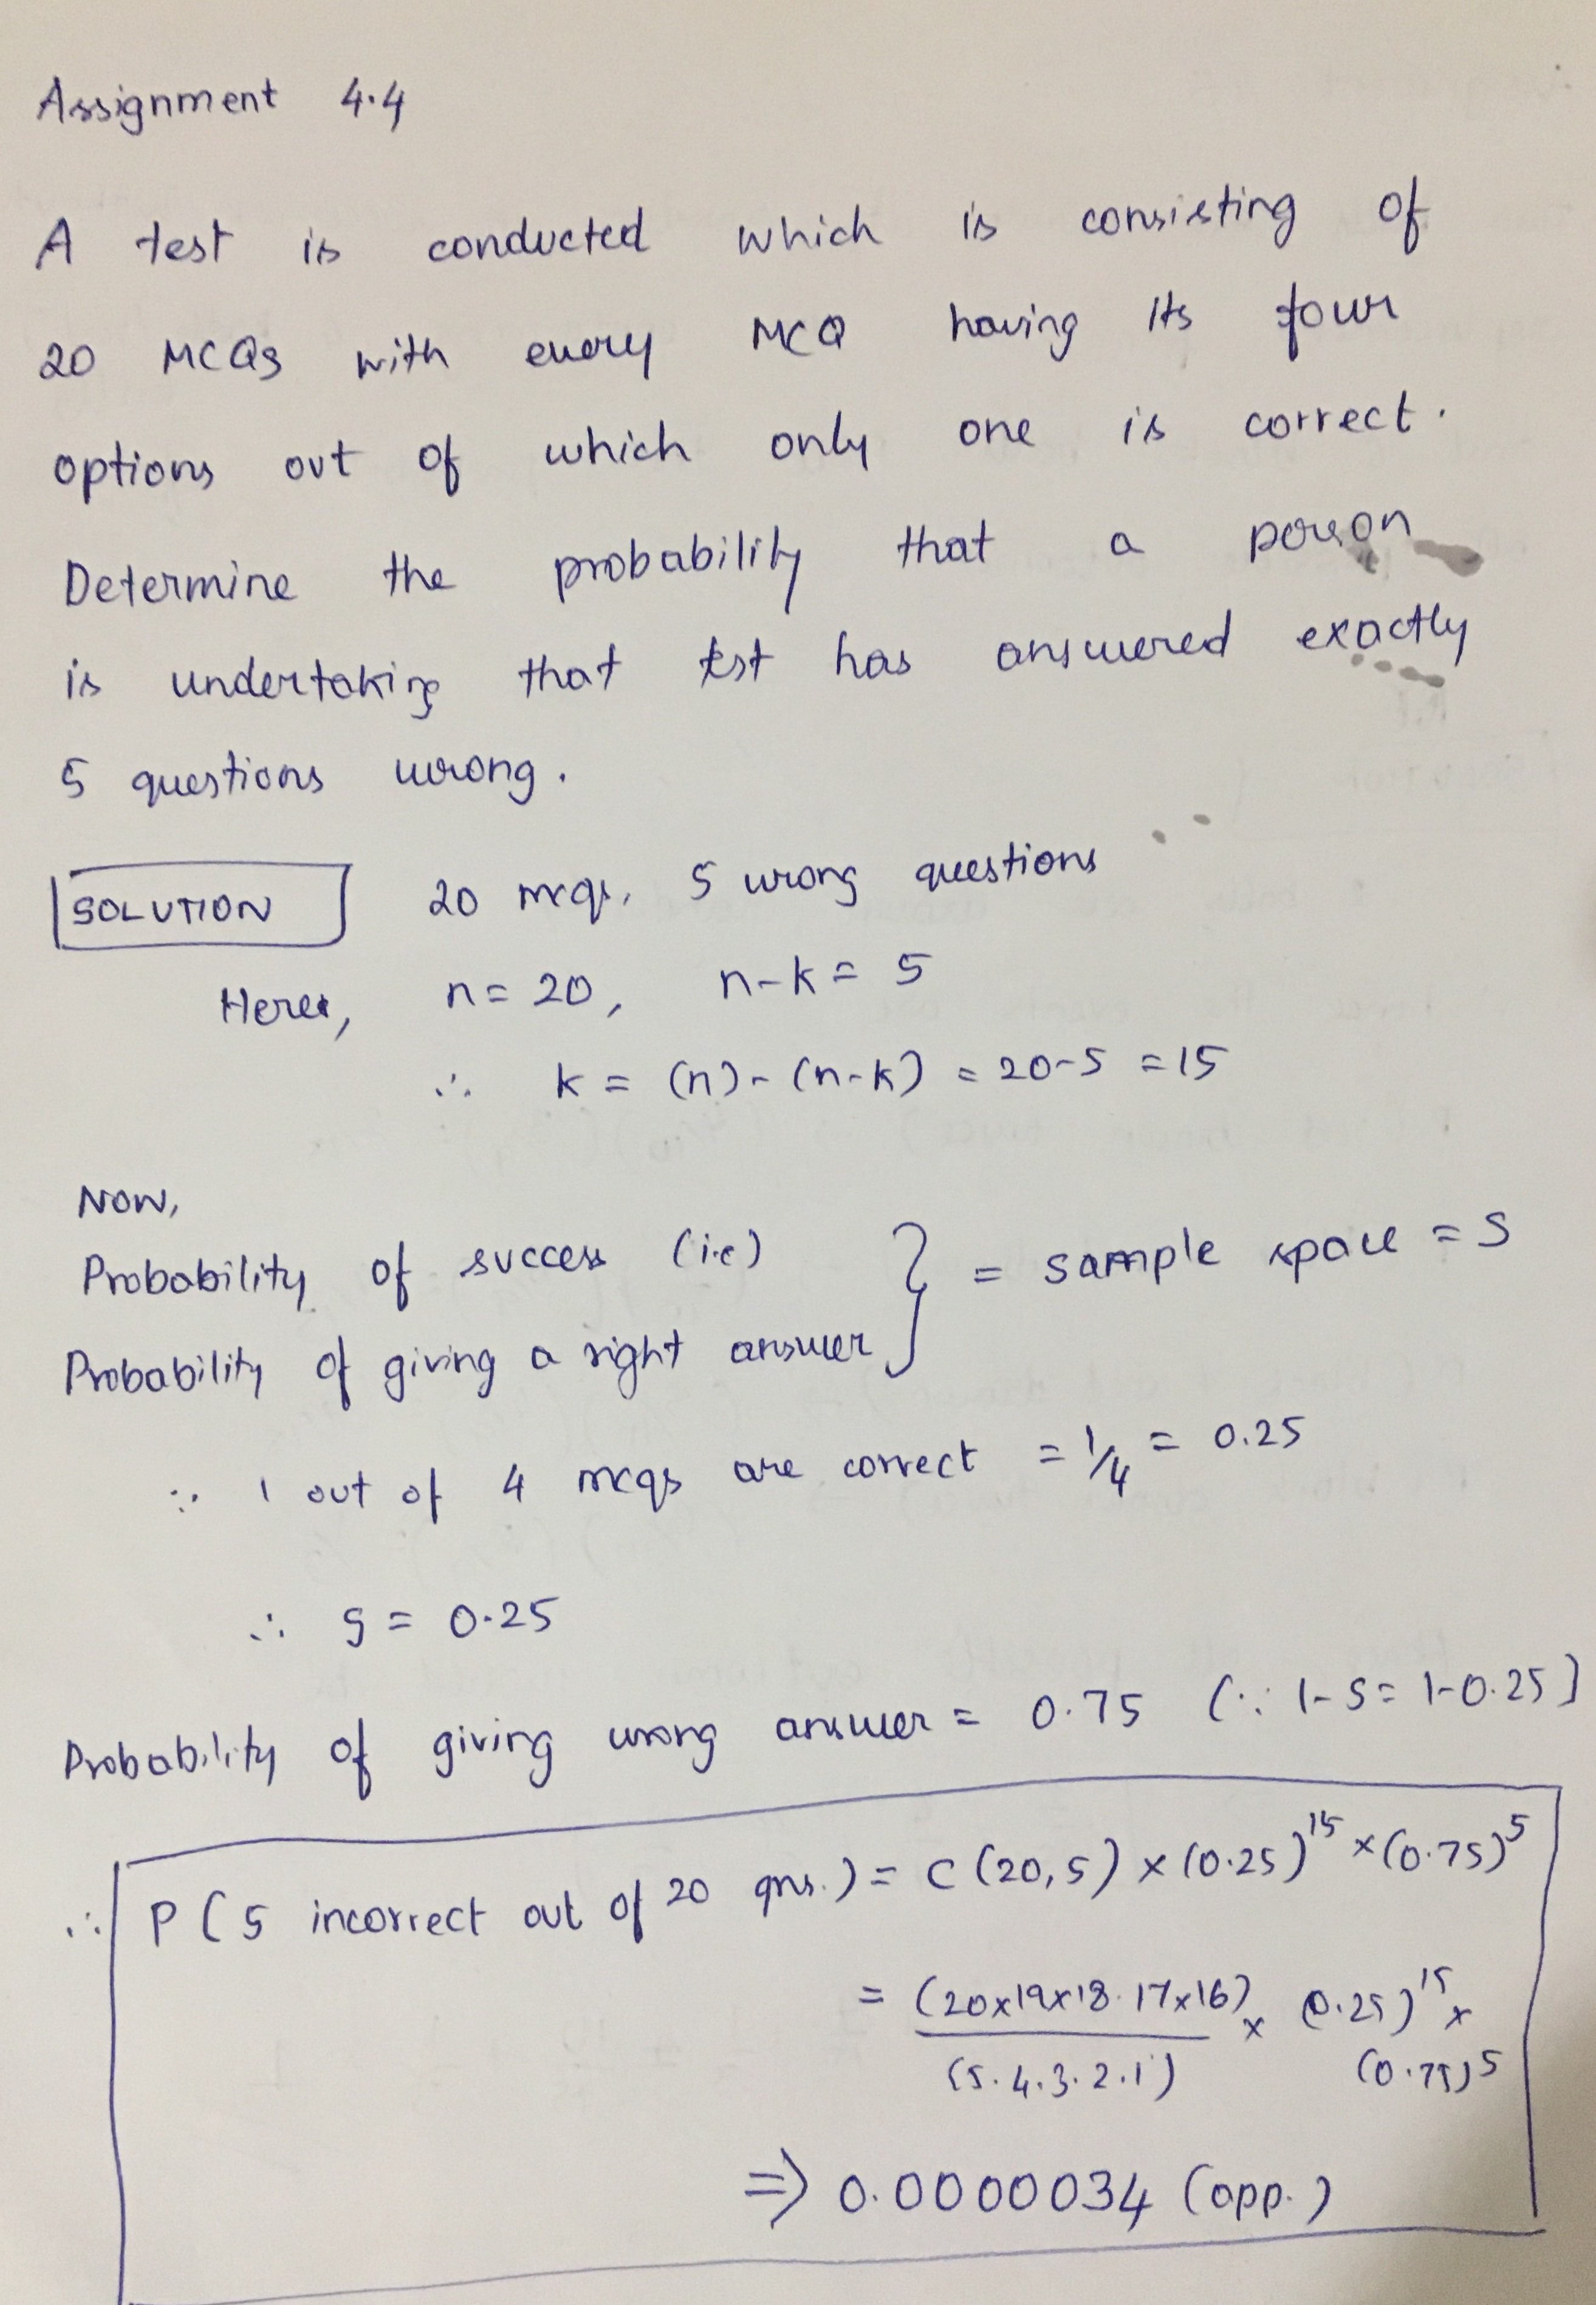 Assignment 4.4
A test is conducted which is consisting of
20 MCQs with every MCQ having its four
options out of which only one is correct.
Determine the probability that a person
is undertaking that test has answered exactly
5 questions wrong.
SOLUTION 20 mcqs, 5 wrong questions
Here, n = 20, n-k = 5
∴ k = (n) - (n-k) = 20-5 = 15
Now,
Probability of success (i.e)
Probability of giving a right answer } = sample space = S
∵ 1 out of 4 mcqs are correct = 1/4 = 0.25
∴ S = 0.25
Probability of giving wrong answer = 0.75 (∵ 1-S = 1-0.25)
∴ P(5 incorrect out of 20 qns.) = C(20,5) × (0.25)^15 × (0.75)^5
= (20×19×18.17×16) × (0.25)^15 ×
(5.4.3.2.1) (0.75)^5
⇒ 0.0000034 (app.)